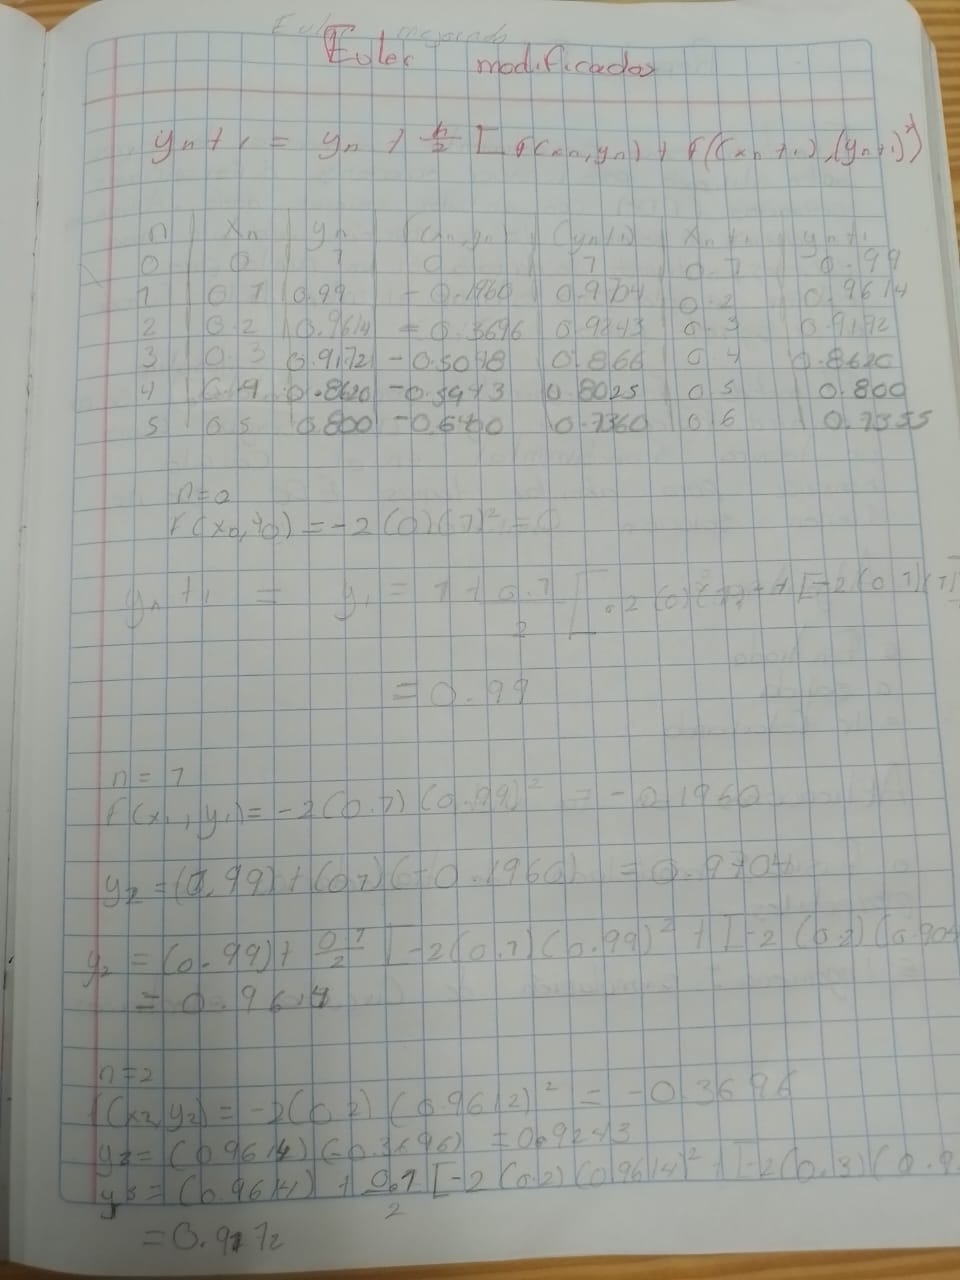 Euler mejorado
Euler modificado
yn+1 = yn + h/2 [f(xn,yn) + f((xn+1),(yn+1)*)
n xn yn (xn,yn) (yn+1) xn+1 yn+1
0 0 1 0 1 0.1 0.99
1 0.1 0.99 -0.1960 0.9704 0.2 0.9614
2 0.2 0.9614 -0.3696 0.9243 0.3 0.9172
3 0.3 0.9172 -0.5048 0.866 0.4 0.8620
4 0.4 0.8620 -0.5943 0.8025 0.5 0.800
5 0.5 0.800 -0.6400 0.7360 0.6 0.7355
n=0
f(x0,y0) = -2(0)(1)² = 0
yn+1 = y1 = 1 + 0.1/2 [-2(0)(1)² + [-2(0.1)(1)
= 0.99
n = 1
f(x1,y1) = -2(0.1)(0.99)² = -0.1960
y2 = (0.99)+(0.1)(-0.1960) = 0.9704
y2 = (0.99)+ 0.1/2 [-2(0.1)(0.99)² + [-2(0.2)(0.904
= 0.9614
n=2
f(x2,y2) = -2(0.2)(0.9612)² = -0.3696
y3 = (0.9614)(-0.3696) = 0.9243
y3 = (0.9614) + 0.1/2 [-2(0.2)(0.9614)² + [-2(0.3)(0.9
= 0.9172